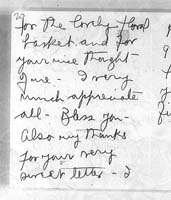 for the lovely floral
basket and for
your nice thought-
I very
much appreciate
all - Bless you -
Also my thanks
for your very
sweet letter - I